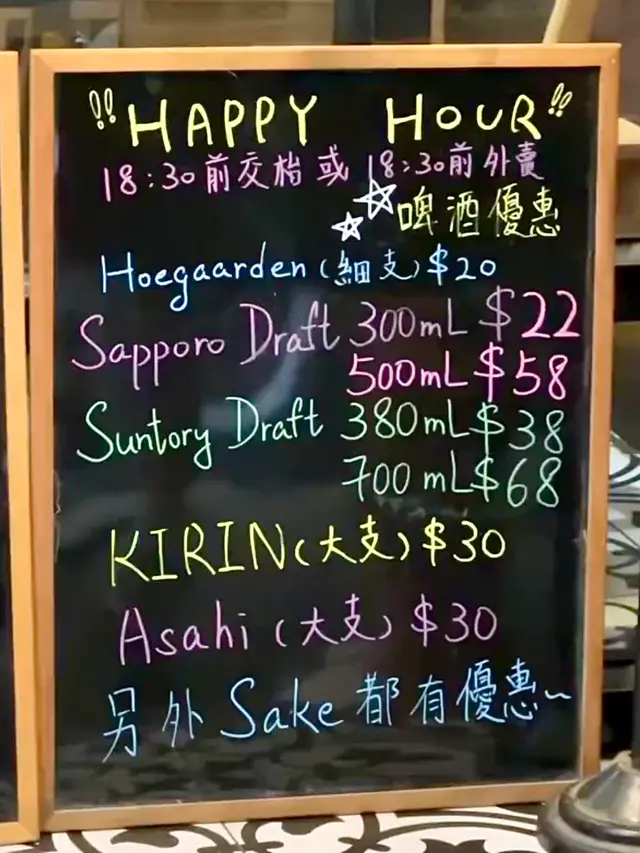 !! HAPPY HOUR !!
18:30前交枱或 18:30前外賣
啤酒優惠
Hoegaarden (細支) $20
Sapporo Draft 300mL $22
500mL $58
Suntory Draft 380mL $38
700mL $68
KIRIN (大支) $30
Asahi (大支) $30
另外 Sake 都有優惠~